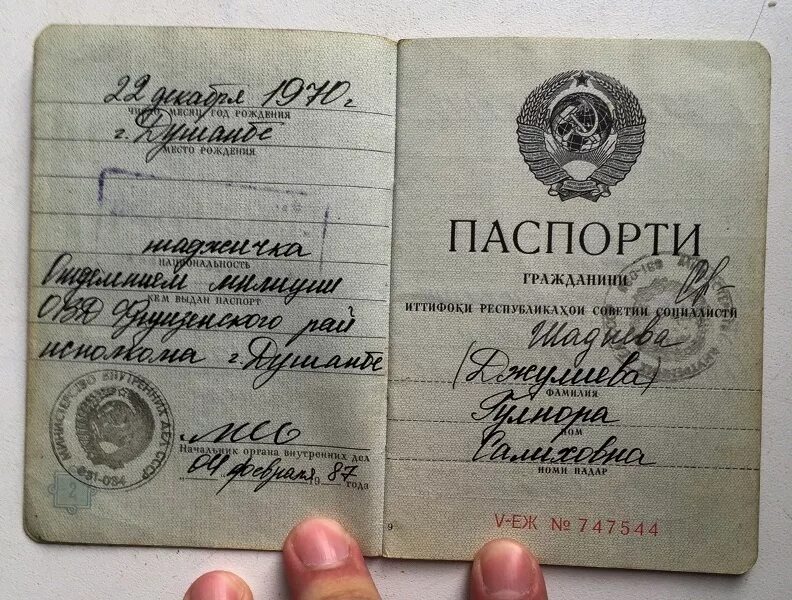 22 декабря 1970 г
ЧИСЛО, МЕСЯЦ, ГОД РОЖДЕНИЯ
г. Душанбе
МЕСТО РОЖДЕНИЯ
таджичка
НАЦИОНАЛЬНОСТЬ
Отделением милиции
КЕМ ВЫДАН ПАСПОРТ
ОВД Фрунзенского рай
исполкома г. Душанбе
МИНИСТЕРСТВО ВНУТРЕННИХ ДЕЛ СССР
691-034
Начальник органа внутренних дел
04 февраля 1987 года
2
ПАСПОРТИ
ГРАЖДАНИНИ
ИТТИФОҚИ РЕСПУБЛИКАҲОИ СОВЕТИИ СОЦИАЛИСТӢ
(Джулиева)
ФАМИЛИЯ
Гулнора
НОМ
Салиховна
НОМИ ПАДАР
9
V-ЕЖ № 747544